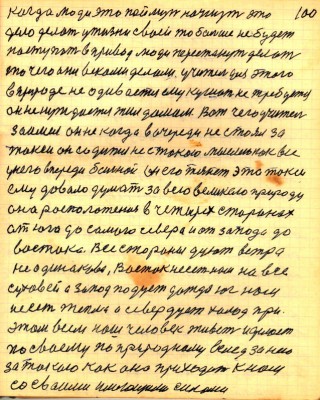 100
когда люди это поймут начнут это
дело делат у жизни своей то больше не будет
поступат в привод люди перестанут делат
то чего они веками делали. учител для этого
в природе не одивается ему кушат не требуется
он не нуждается жилым домом. Вот чего учител
занял он не когда в очереди не стоял за
таким он содится не с токою мыслью как все
у него впереди больной он его тянет это токи
ему довало думат за всю великаю природу
она росположения в четырех сторонах
от юга до самого севера и от запода до
востока. Все стораны дуют ветра
не одинакова, Восток несет нам на все
суховей а запод подует дождя юг нам
несет тепла а север дует холод при
этом всем наш человек живет идиет
по своему по природному вслед за нею
за такою как она приходит к нам
со своими имеющими силами